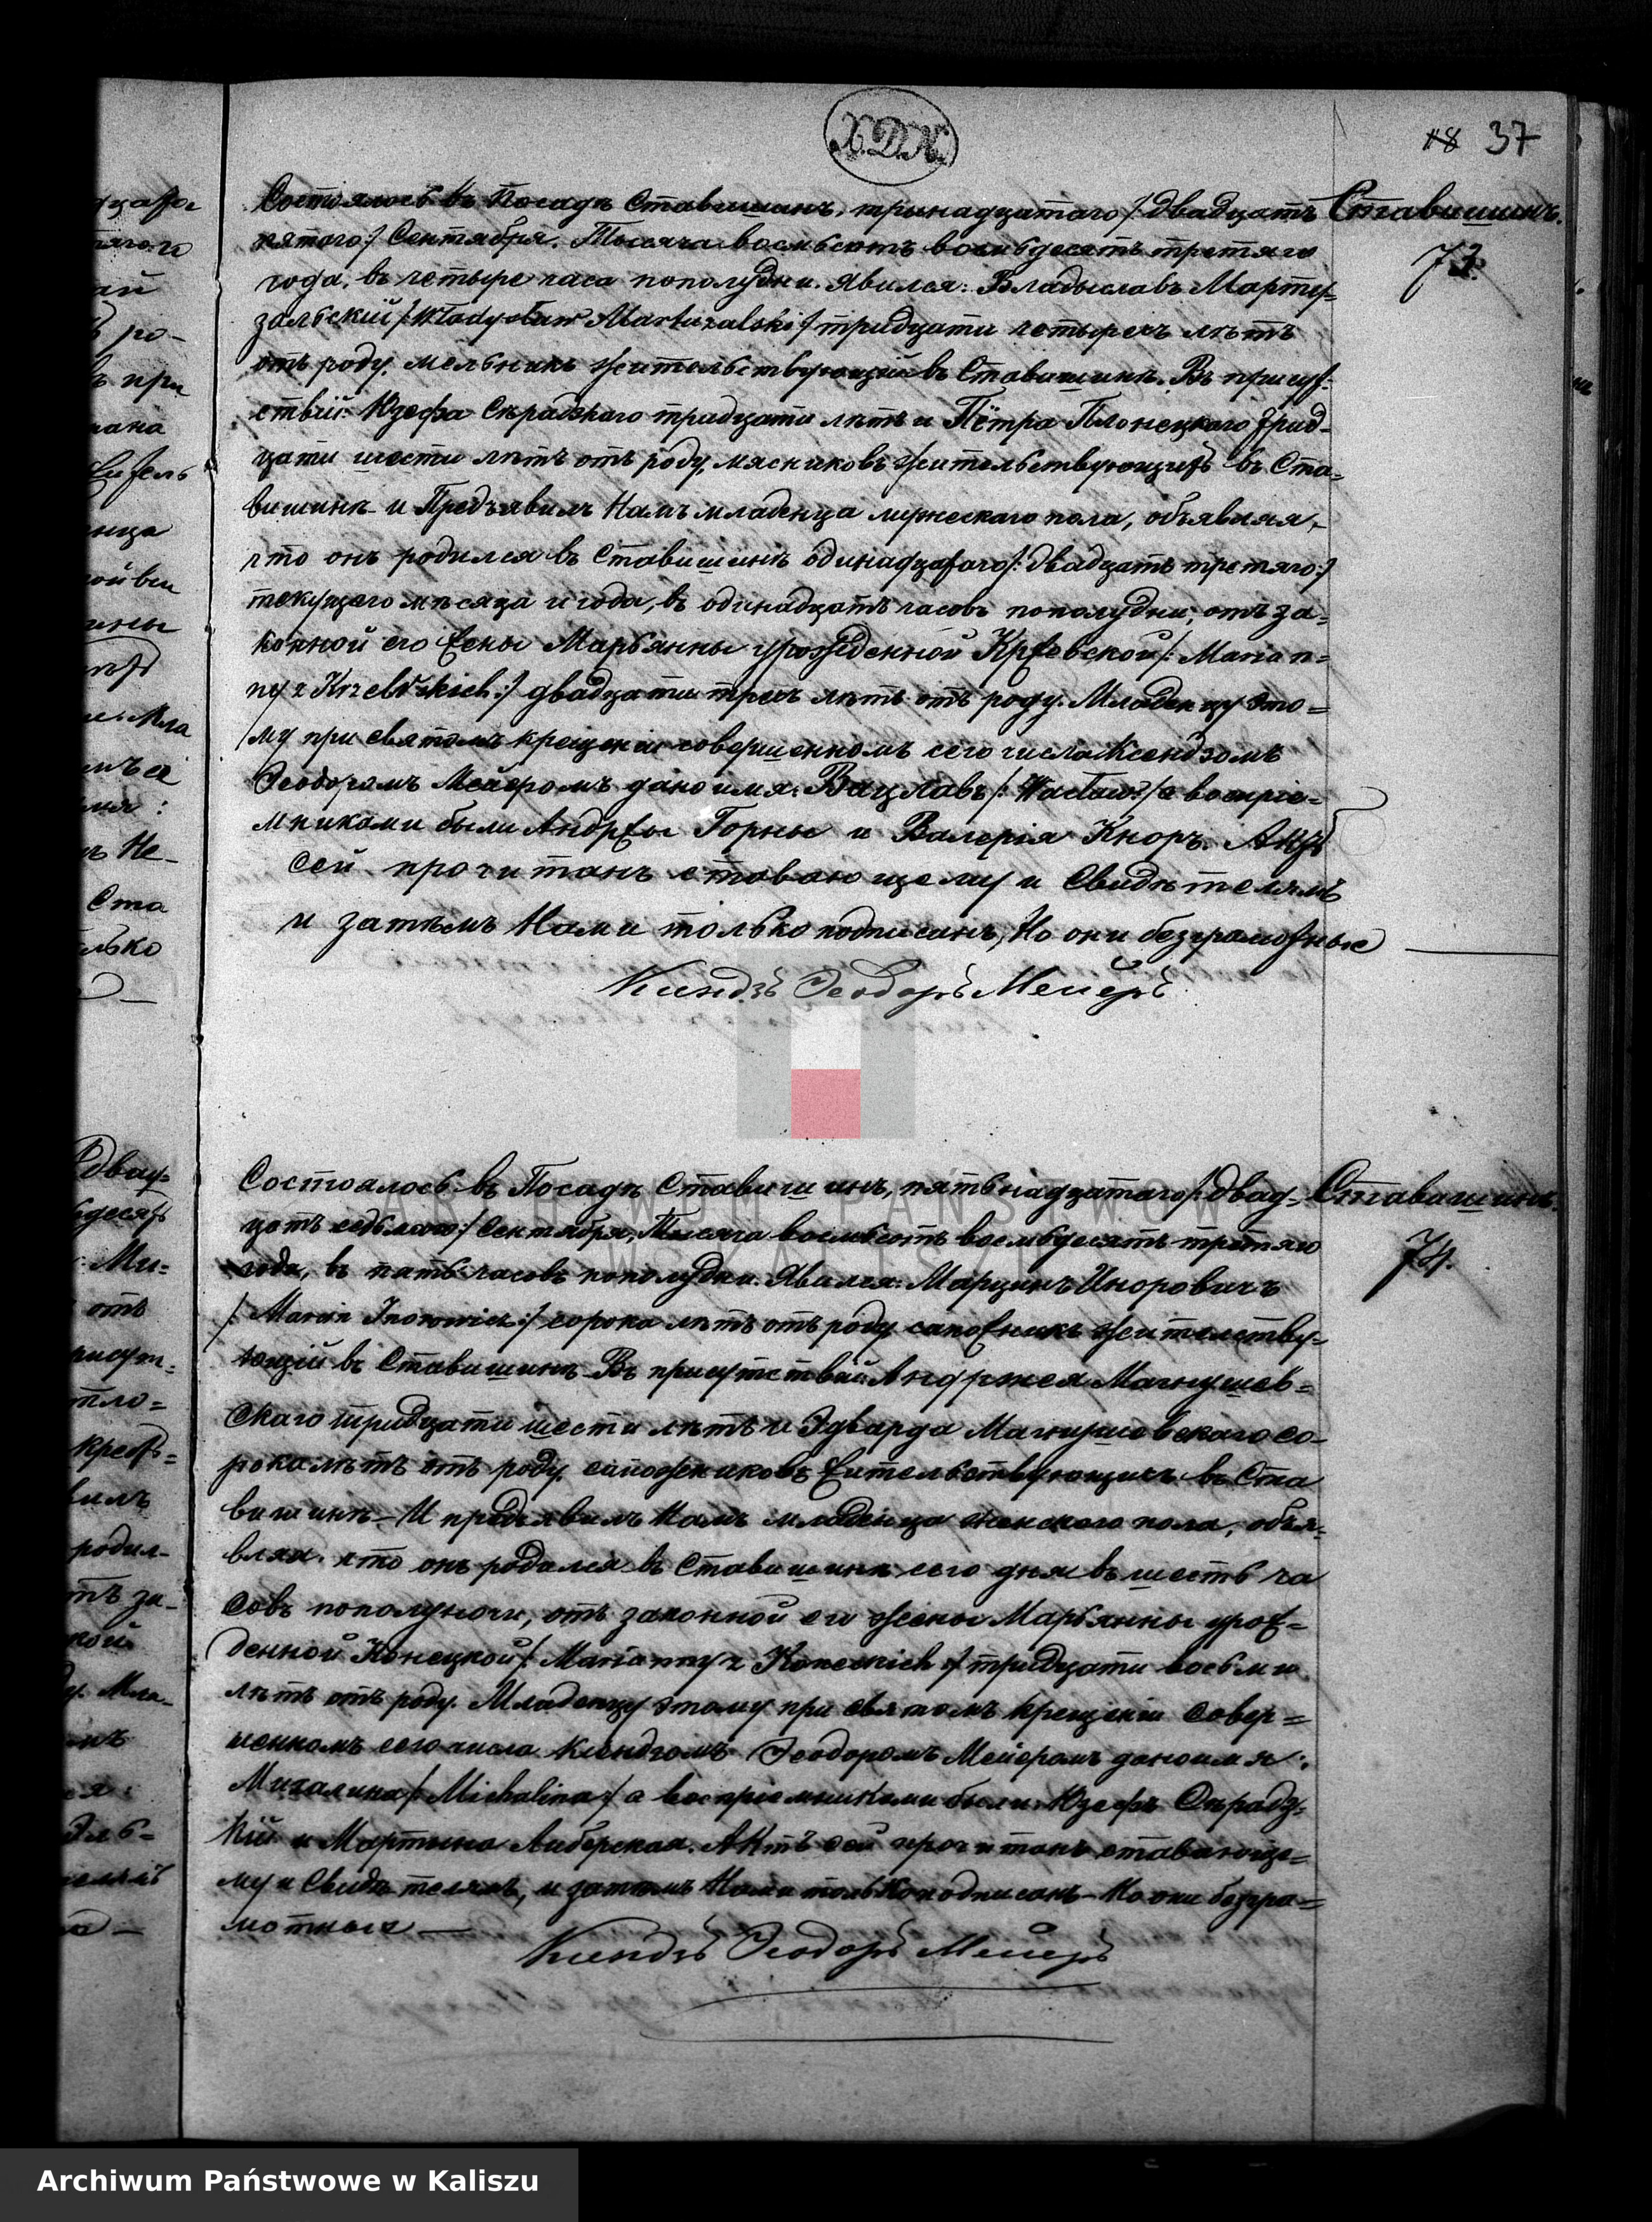 Х.Д.К.
18 37
Состоялось въ Посадѣ Ставишинѣ, тринадцатаго /: двадцать
Ставишинъ.
пятого :/ Сентября, Тысяча восемьсотъ восемьдесятъ третяго
73.
года, въ четыре часа пополудни. Явился: Владыславъ Марту-
зальскій /: Władysław Martuzalski :/ тридцати четырехъ лѣтъ
отъ роду, мельникъ жительствующій въ Ставишинѣ. Въ присут-
ствіи Юзефа Сѣрадзкаго тридцати лѣтъ и Пётра Плонецкаго трид-
цати шести лѣтъ отъ роду, мясниковъ жительствующихъ въ Ста-
вишинѣ и Предъявилъ Намъ младенца мужескаго пола, объявляя,
что онъ родился въ Ставишинѣ одинадцатого /: двадцать третяго :/
текущаго мѣсяца и года, въ одинадцать часовъ пополудни, отъ за-
конной его жены Марьянны урожденной Кржевской /: Marian-
ny z Krzewskich :/ двадцати трехъ лѣтъ отъ роду. Младенцу это-
му при святомъ крещеніи совершенномъ сего числа Ксендзомъ
Теодоромъ Мейеромъ дано имя: Вацлавъ /: Wacław :/ а воспріе-
мниками были Андржы Горны и Валерія Кноръ. Актъ
сей прочитанъ ставающему и Свидѣтелямъ
и затѣмъ Нами только подписанъ, Но они безграмотные
Ксендзъ Теодоръ Мейеръ
Состоялось въ Посадѣ Ставишинѣ, пятьнадцатаго /: двад-
Ставишинъ.
цать седьмаго :/ Сентября, Тысяча восемьсотъ восемьдесятъ третяго
74.
года, въ пять часовъ пополудни. Явился: Марцинъ Иноровичъ
/: Marcin Inorowicz :/ сорока лѣтъ отъ роду сапожникъ жителству-
ющій въ Ставишинѣ. Въ присутствіи Андржея Магнушев-
скаго тридцати шести лѣтъ и Эдварда Магнушевскаго со-
рока лѣтъ отъ роду, сапожниковъ жительствующихъ въ Ста
вишинѣ – И предъявилъ Намъ младенца женскаго пола, объя-
вляя, что онъ родился въ Ставишинѣ сего дня въ шесть ча
совъ пополуночи, отъ законной его жены Марьянны урож-
денной Конецкой /: Marianny z Koneckich :/ тридцати восьми
лѣтъ отъ роду. Младенцу этому при святомъ крещеніи совер-
шенномъ сего числа Ксендзомъ Теодоромъ Мейеромъ дано имя:
Михалина /: Michalina :/ а воспріемниками были Юзефъ Сѣрадз-
кій и Мартына Либерская. Актъ сей прочитанъ ставающе-
му и Свидѣтелямъ, и затѣмъ Нами только подписанъ – Но они безгра-
мотные —
Ксендзъ Теодоръ Мейеръ
ARCHIWUM PAŃSTWOWE
W KALISZU
Archiwum Państwowe w Kaliszu